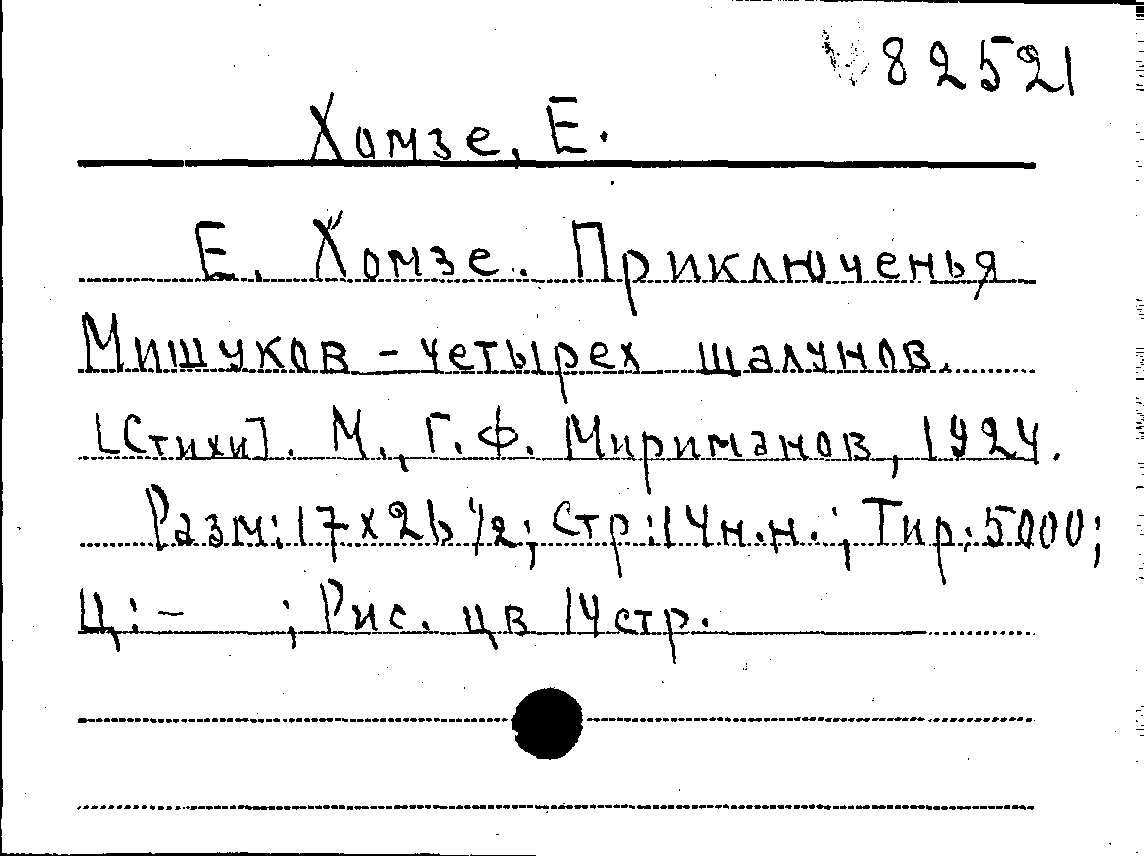 82521
Хомзе, Е.
Е. Хомзе. Приключенья
Мишуков – четырех шалунов.
[Стихи]. М., Г. Ф. Мириманов, 1924.
Разм: 17 х 26 1/2; Стр: 14 н.н.; Тир: 5000;
Ц: – ; Рис. цв 14 стр.